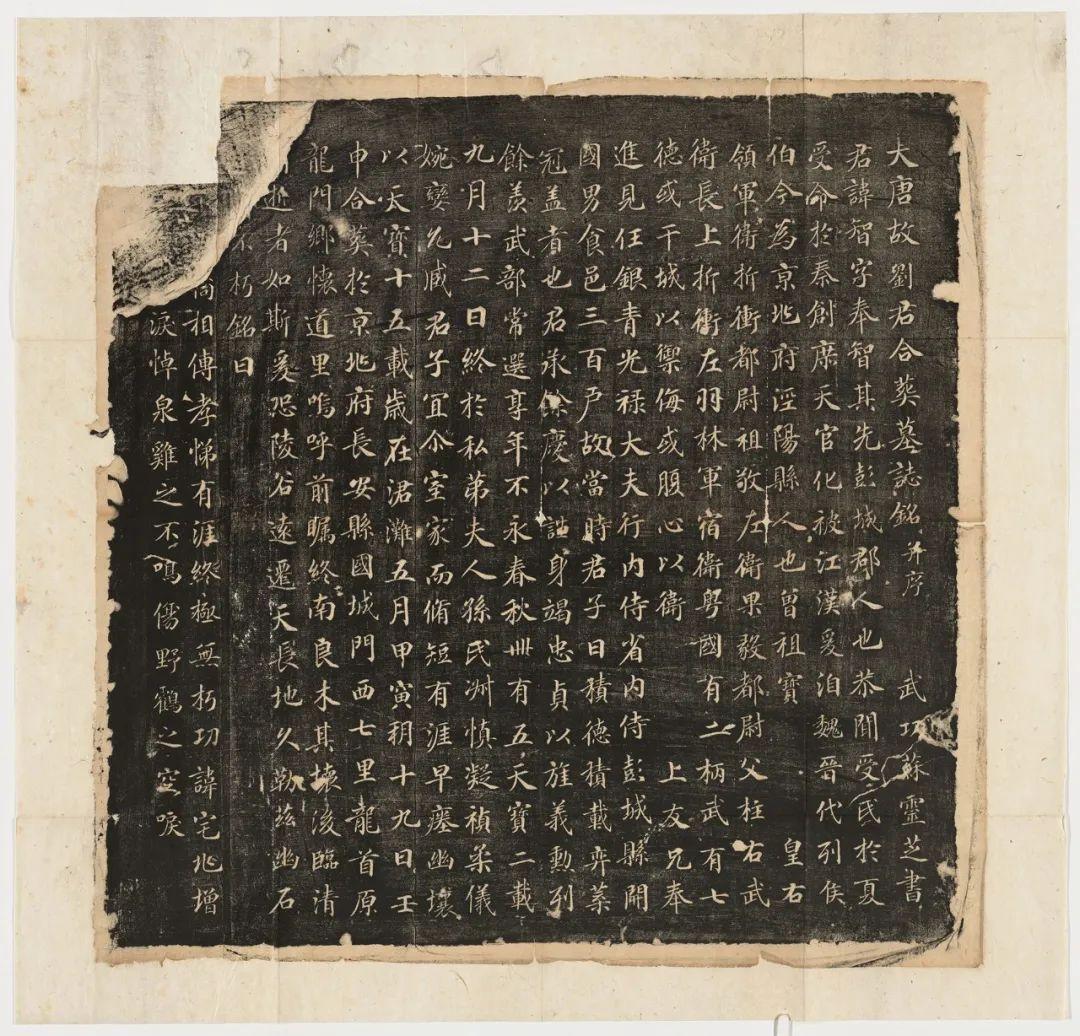 大唐故劉君合葬墓誌銘并序 武功蘇靈芝書
君諱智字奉智其先彭城郡人也恭聞受氏於夏
受命於秦創席天官化被江漢爰洎魏晉代列侯
伯今為京兆府涇陽縣人也曾祖寶 皇右
領軍衛折衝都尉祖敬左衛果毅都尉父柱右武
衛長上折衝左羽林軍宿衛粤國有二柄武有七
德或干城以禦侮或腹心以衛 上友兄奉
進見任銀青光禄大夫行内侍省内侍彭城縣開
國男食邑三百戶故當時君子曰積德積載弈葉
冠蓋者也君承餘慶以誼身竭忠貞以旌義勳列
餘羨武部常選享年不永春秋卌有五天寶二載
九月十二日終於私第夫人孫氏淑慎凝禎柔儀
婉孌允臧君子宜尒室家而脩短有涯早瘞幽壤
以天寶十五載歲在涒灘五月甲寅朔十九日壬
申合葬於京兆府長安縣國城門西七里龍首原
龍門鄉懷道里嗚呼前矚終南良木其壞後臨清
逝者如斯爰恐陵谷遠遷天長地久勒茲幽石
不朽銘曰
相傳孝悌有涯終極無朽功諱宅兆增
淚悼泉雞之不鳴傷野鶴之空唳